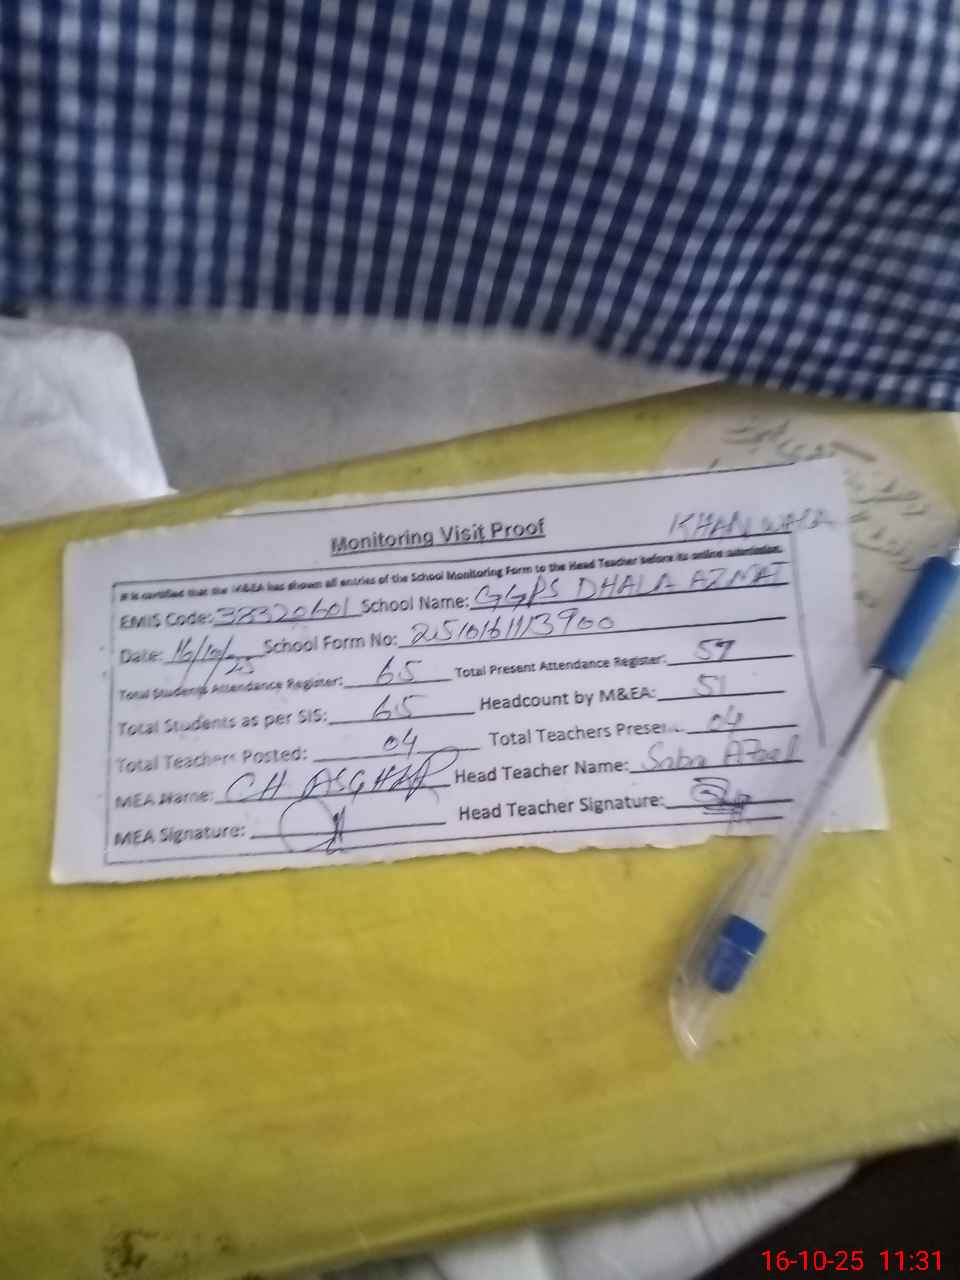 Monitoring Visit Proof
KHANWALA
It is certified that the M&EA has shown all entries of the School Monitoring Form to the Head Teacher before its online submission.
EMIS Code: 38320601 School Name: GGPS DHALA AZMAT
Date: 16/10/25 School Form No: 2510161113900
Total Students Attendance Register: 65 Total Present Attendance Register: 57
Total Students as per SIS: 65 Headcount by M&EA: 51
Total Teachers Posted: 04 Total Teachers Presen... 04
MEA Name: CH ASGHAR Head Teacher Name: Saba
MEA Signature: Head Teacher Signature:
16-10-25 11:31